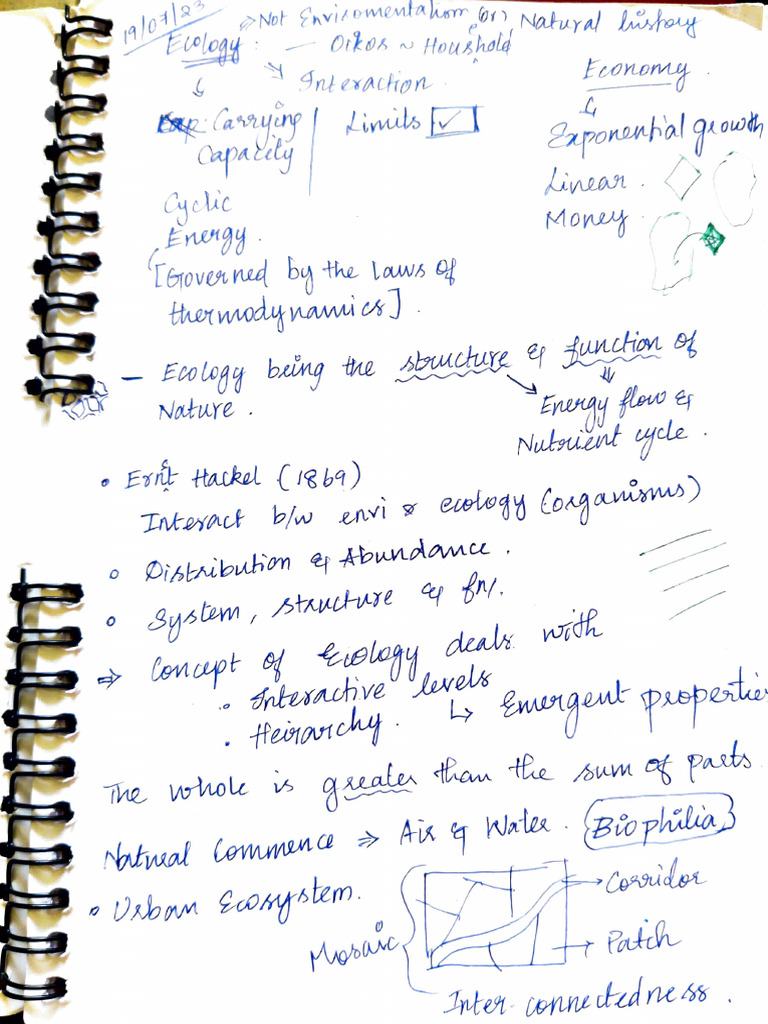 19/07/23
⇒ Not Enviromentalism (or) Natural history
Ecology : — Oikos ~ Houshold
Interaction
Economy
Carrying Capacity | Limits ✓
Exponential growth
Linear
Money
Cyclic
Energy.
[Governed by the laws of
thermodynamics].
— Ecology being the structure & function of
Nature.
Energy flow &
Nutrient cycle.
• Ernst Hackel (1869)
Interact b/w envi & ecology (organisms)
○ Distribution & Abundance.
○ System, structure & fn/.
⇒ Concept of Ecology deals with
• Interactive levels
• Heirarchy. ↳ Emergent propertie
The whole is greater than the sum of parts.
Natural Commence ⇒ Air & Water. Biophilia
• Urban Ecosystem.
Corridor
Mosaic
Patch
Inter-connectedness.